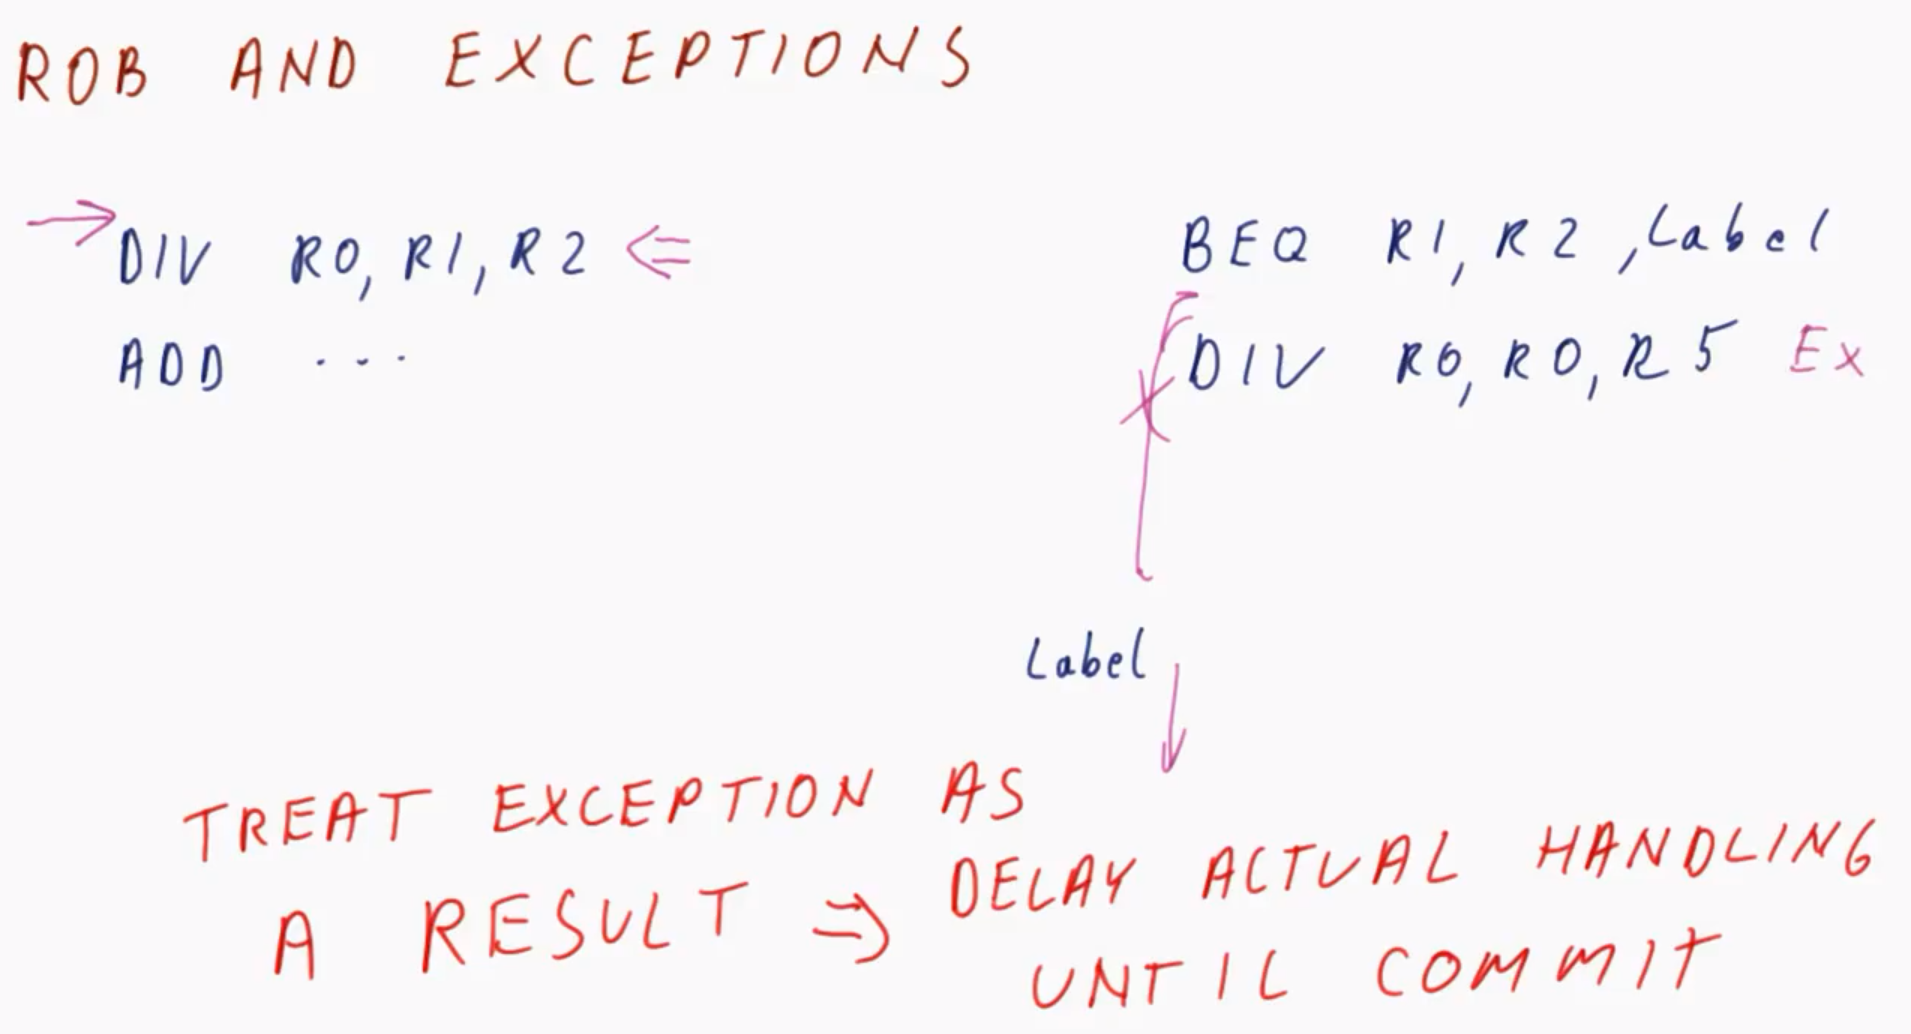 ROB AND EXCEPTIONS
DIV R0, R1, R2
ADD ...
BEQ R1, R2, Label
DIV R0, R0, R5 Ex
Label
TREAT EXCEPTION AS
A RESULT ⇒ DELAY ACTUAL HANDLING
UNTIL COMMIT